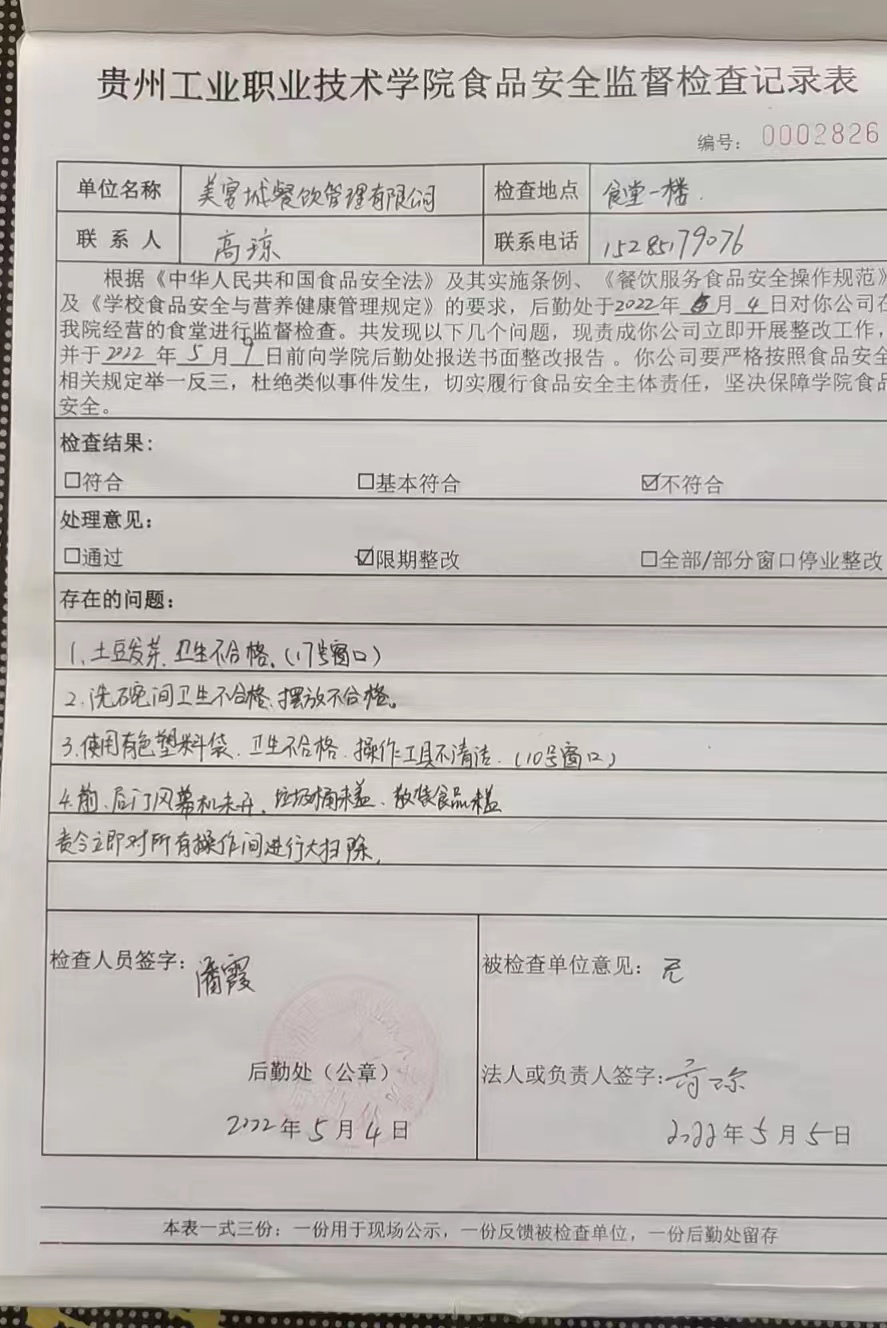 贵州工业职业技术学院食品安全监督检查记录表
编号： 0002826
单位名称 美宫城餐饮管理有限公司 检查地点 食堂一楼.
联系人 高琼 联系电话 15285179076
根据《中华人民共和国食品安全法》及其实施条例、《餐饮服务食品安全操作规范》
及《学校食品安全与营养健康管理规定》的要求，后勤处于2022年5月4日对你公司在
我院经营的食堂进行监督检查。共发现以下几个问题，现责成你公司立即开展整改工作，
并于2022年5月9日前向学院后勤处报送书面整改报告。你公司要严格按照食品安全
相关规定举一反三，杜绝类似事件发生，切实履行食品安全主体责任，坚决保障学院食品
安全。
检查结果：
☐符合 ☐基本符合 ☑不符合
处理意见：
☐通过 ☑限期整改 ☐全部/部分窗口停业整改
存在的问题：
1、土豆发芽、卫生不合格、（17号窗口）
2、洗碗间卫生不合格、摆放不合格。
3、使用有色塑料袋、卫生不合格、操作工具不清洁、（10号窗口）
4、前、后门风幕机未开、垃圾桶未盖、散装食品未盖
责令立即对所有操作间进行大扫除，
检查人员签字：潘霞 被检查单位意见：无
后勤处（公章） 法人或负责人签字：高琼
2022年5月4日 2022年5月5日
本表一式三份：一份用于现场公示，一份反馈被检查单位，一份后勤处留存